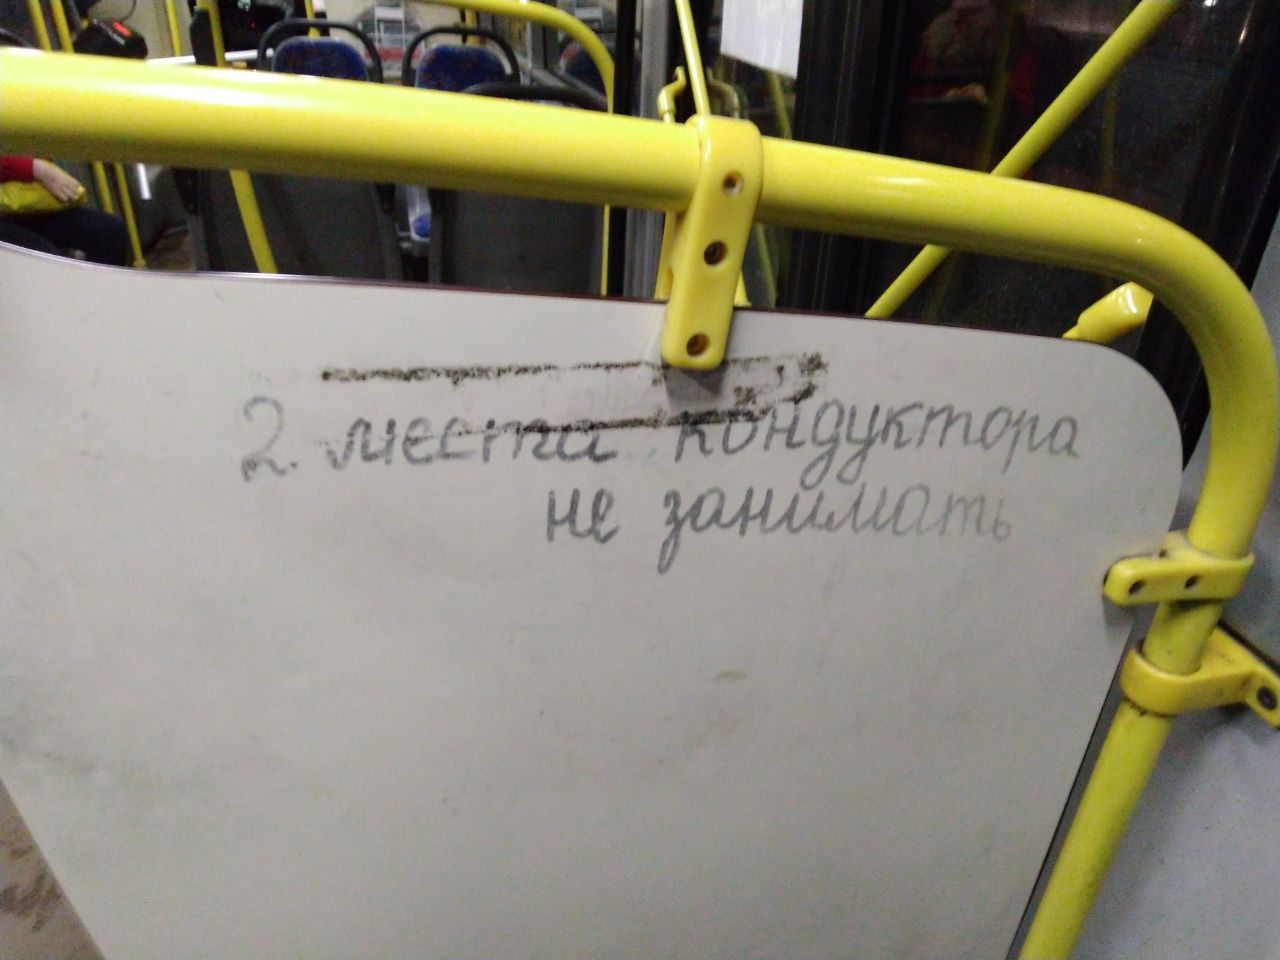 2. места кондуктора
не занимать